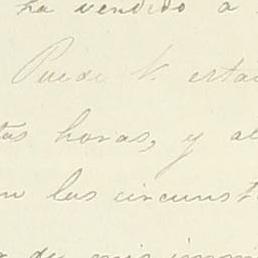 ha vendido a
Puede V. estar
tas horas, y al
n las circunst
de mis